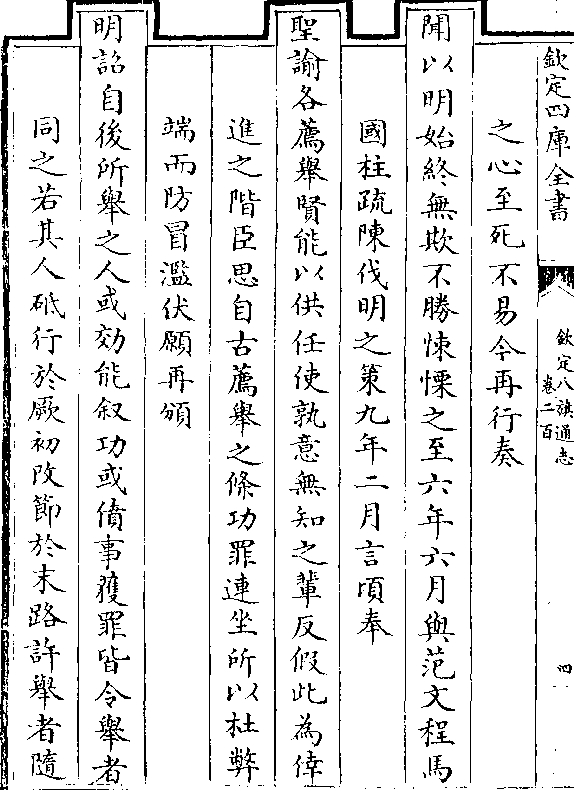 欽定四庫全書
欽定八旗通志
卷二百
四
之心至死不易今再行奏
聞以明始終無欺不勝悚慄之至六年六月與范文程馬
國柱疏陳伐明之策九年二月言頃奉
聖諭各薦舉賢能以供任使孰意無知之輩反假此為倖
進之階臣思自古薦舉之條功罪連坐所以杜弊
端而防冒濫伏願再頒
明詔自後所舉之人或効能叙功或僨事獲罪皆令舉者
同之若其人砥行於厥初改節於末路許舉者隨